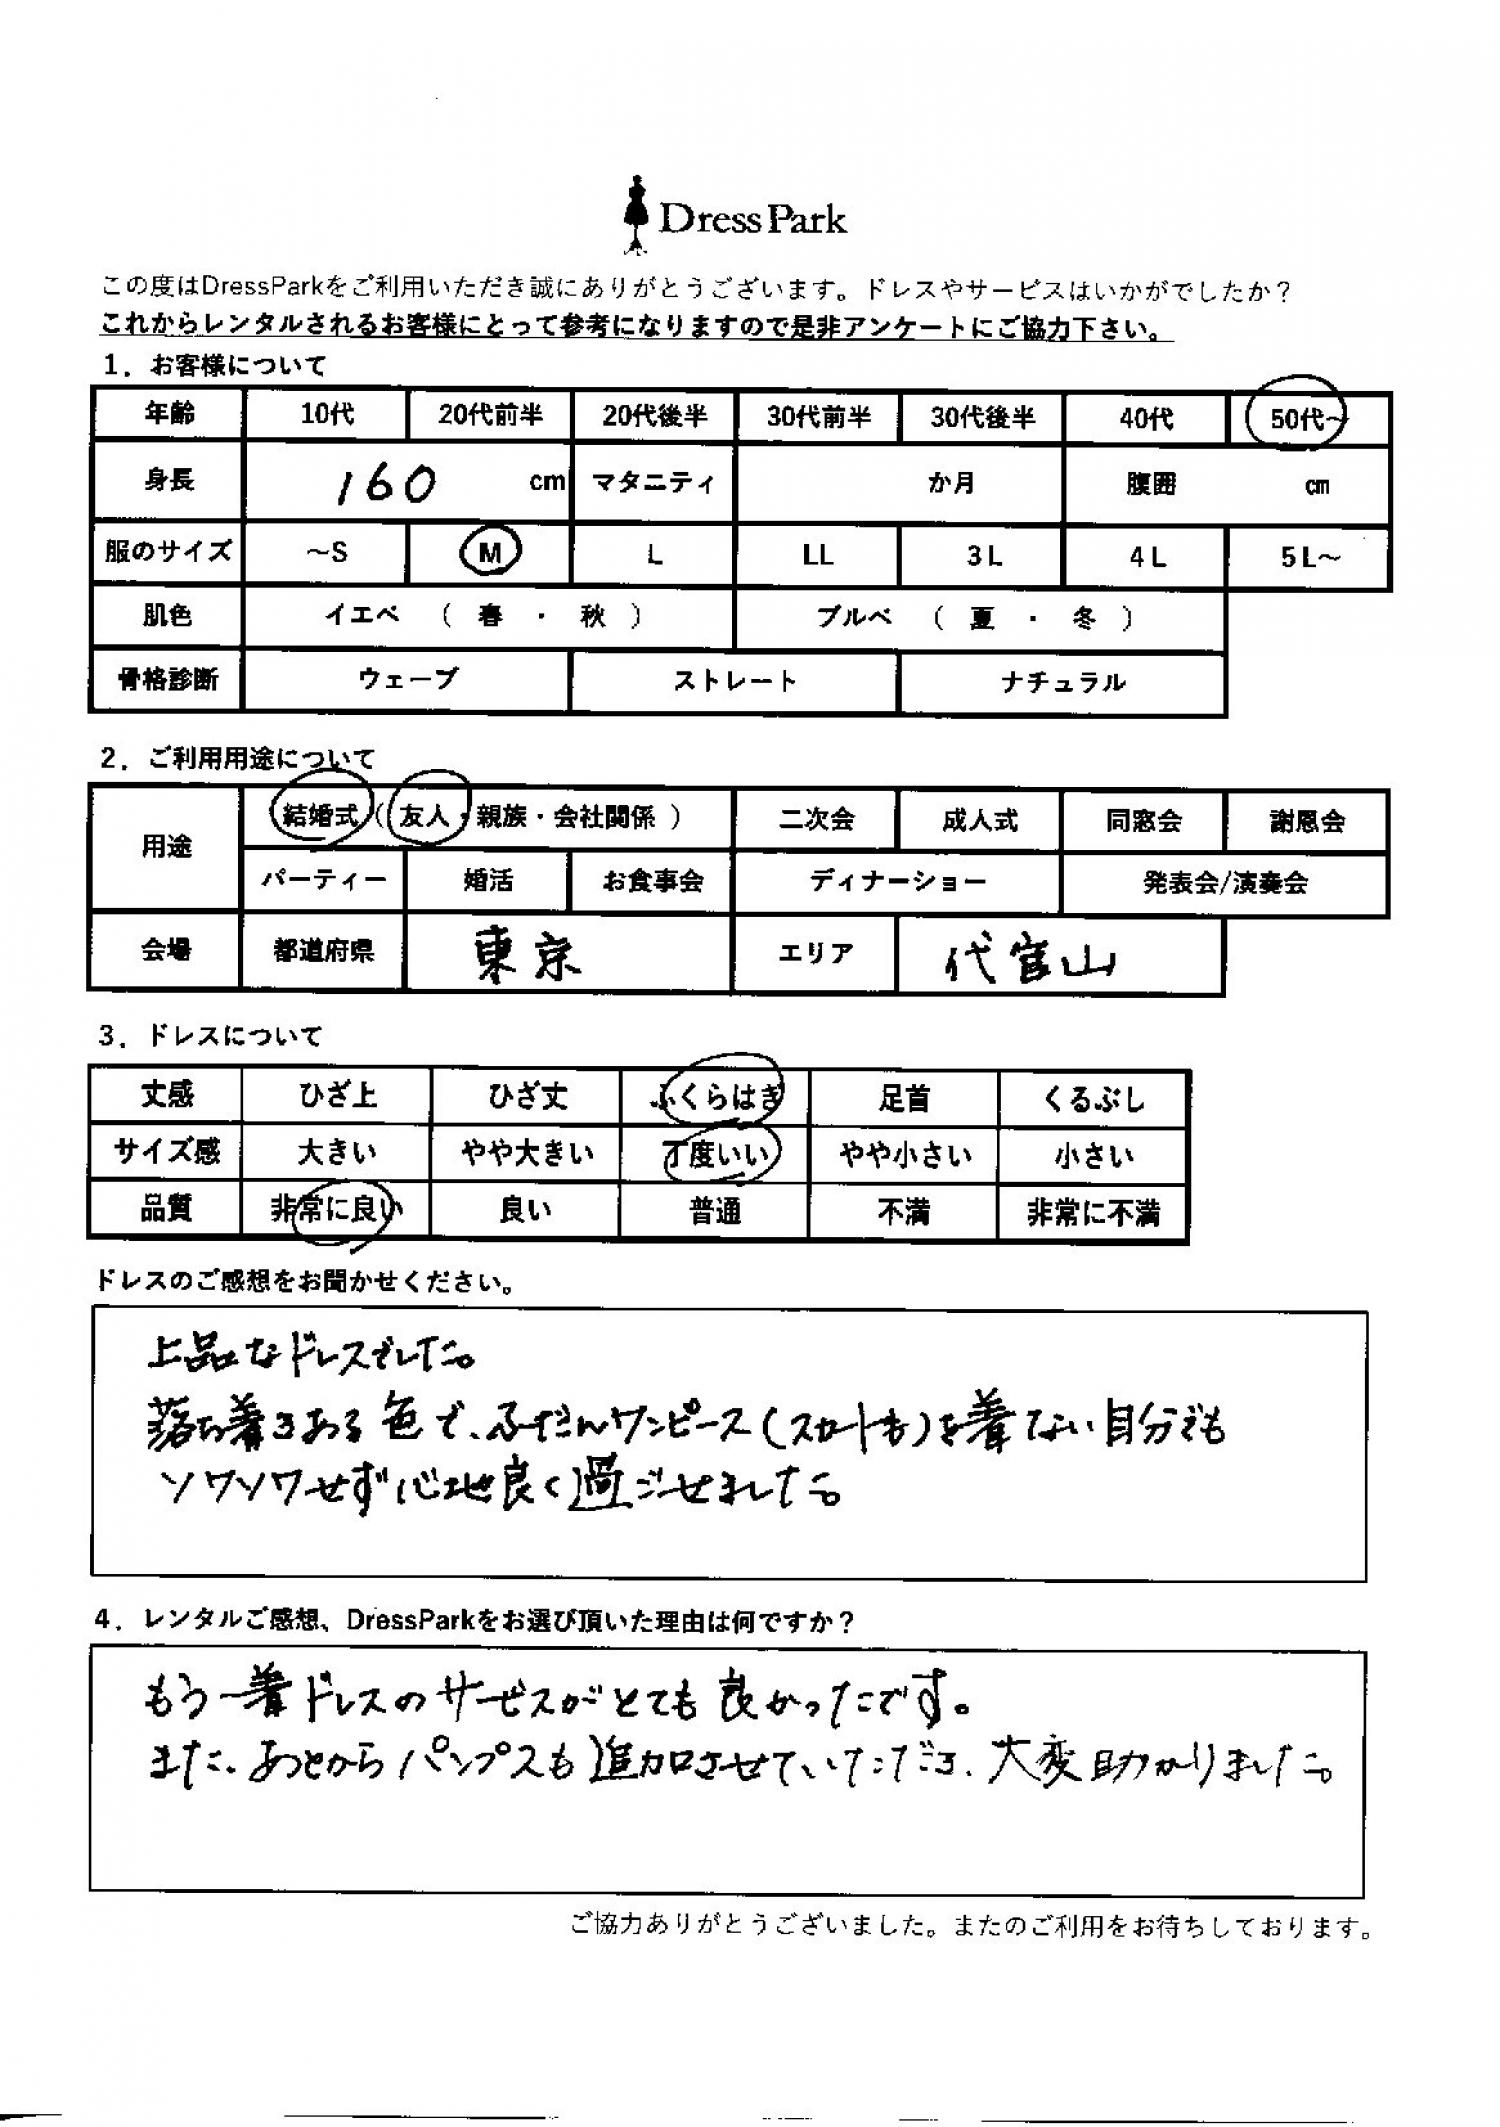 Dress Park
この度はDressParkをご利用いただき誠にありがとうございます。ドレスやサービスはいかがでしたか？
これからレンタルされるお客様にとって参考になりますので是非アンケートにご協力下さい。
1．お客様について
年齢 10代 20代前半 20代後半 30代前半 30代後半 40代 50代～
身長 160 cm マタニティ か月 腹囲 cm
服のサイズ ～S M L LL 3L 4L 5L～
肌色 イエベ （ 春 ・ 秋 ） ブルベ （ 夏 ・ 冬 ）
骨格診断 ウェーブ ストレート ナチュラル
2．ご利用用途について
用途 結婚式（ 友人・親族・会社関係 ） 二次会 成人式 同窓会 謝恩会
パーティー 婚活 お食事会 ディナーショー 発表会/演奏会
会場 都道府県 東京 エリア 代官山
3．ドレスについて
丈感 ひざ上 ひざ丈 ふくらはぎ 足首 くるぶし
サイズ感 大きい やや大きい 丁度いい やや小さい 小さい
品質 非常に良い 良い 普通 不満 非常に不満
ドレスのご感想をお聞かせください。
上品なドレスでした。
落ち着きある色で、ふだんワンピース(スカートも)を着ない自分でも
ソワソワせず心地良く過ごせました。
4．レンタルご感想、DressParkをお選び頂いた理由は何ですか？
もう一着ドレスのサービスがとても良かったです。
また、あとからパンプスも追加させていただき、大変助かりました。
ご協力ありがとうございました。またのご利用をお待ちしております。